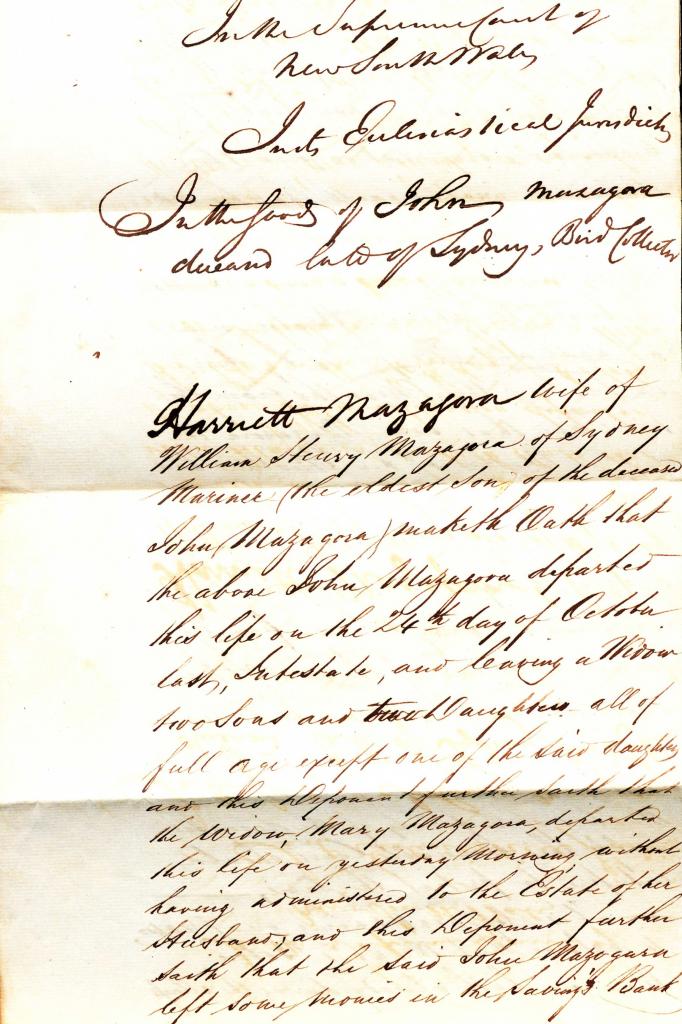 In the Supreme Court of
New South Wales
In its Eclesiastical Jurisdictn
In the Goods of John Mazagora
deceased late of Sydney, Bird Collector
Harriett Mazagora wife of
William Henry Mazagora of Sydney
Mariner (the eldest Son of the deceased
John Mazagora) maketh Oath that
the above John Mazagora departed
this life on the 24th day of October
last, Intestate, and leaving a Widow
two Sons and Daughters all of
full age except one of the said daughters
and this Deponent further saith that
the Widow, Mary Mazagora, departed
this life on yesterday Morning, without
having administered to the Estate of her
Husband, and this Deponent further
saith that the said John Mazagora
left some monies in the Saving's Bank